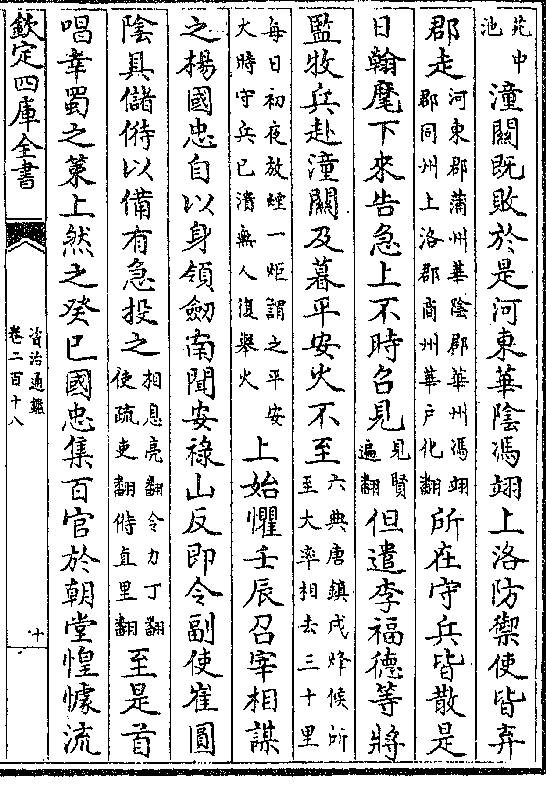 苑中
池
潼關既敗於是河東華陰馮翊上洛防禦使皆弃
郡走
河東郡蒲州華陰郡華州馮翊
郡同州上洛郡商州華户化翻
所在守兵皆散是
日翰麾下來告急上不時召見
見賢
遍翻
但遣李福德等將
監牧兵赴潼關及暮平安火不至
六典唐鎮戍烽候所
至大率相去三十里
每日初夜放煙一炬謂之平安
火時守兵已潰無人復舉火
上始懼壬辰召宰相謀
之楊國忠自以身領劒南聞安祿山反即令副使崔圓
陰具儲偫以備有急投之
相息亮翻令力丁翻
使疏吏翻偫直里翻
至是首
唱幸蜀之策上然之癸巳國忠集百官於朝堂惶懅流
欽定四庫全書
資治通鑑
卷二百十八
十